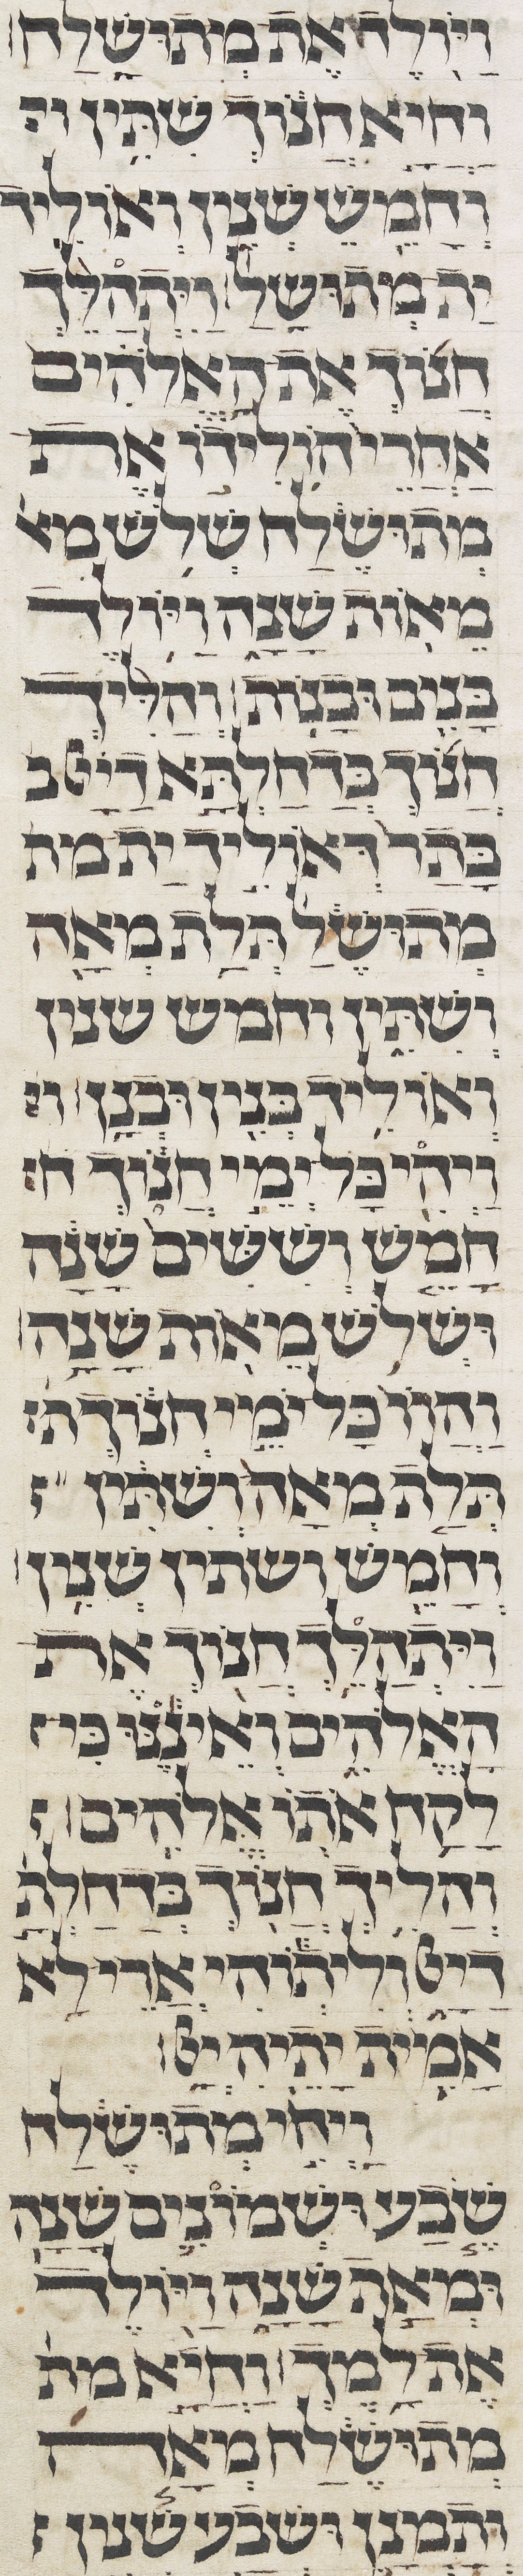 ויולד את מתושלח
וחיא חנוך שתין וח
וחמש שנין ואוליד
ית מתושל ויתהלך
חנוך את האלהים
אחרי הולידו את
מתושלח שלש מא
מאות שנה ויולד
בנים ובנות והליך
חנוך בדחלתא דיט ב
בתר דאוליד ית מת
מתושל תלת מאה
ושתין וחמש שנין
ואוליד בנין ובנן וי
ויהי כל ימי חנוך ח
חמש וששים שנה
ושלש מאות שנה
והוו כל יומי חנוך ת
תלת מאה ושתין ו
וחמש ושתין שנין
ויתהלך חנוך את
האלהים ואיננו כי
לקח אותו אלהים ו
והליך חנוך בדחלת
דיט וליתוהי ארי לא
אמית יתיה יט
ויחי מתושלח
שבע ושמונים שנה
ומאת שנה ויולד
את למך וחיא מת
מתושלח מאה
ותמנן ושבע שנין ו